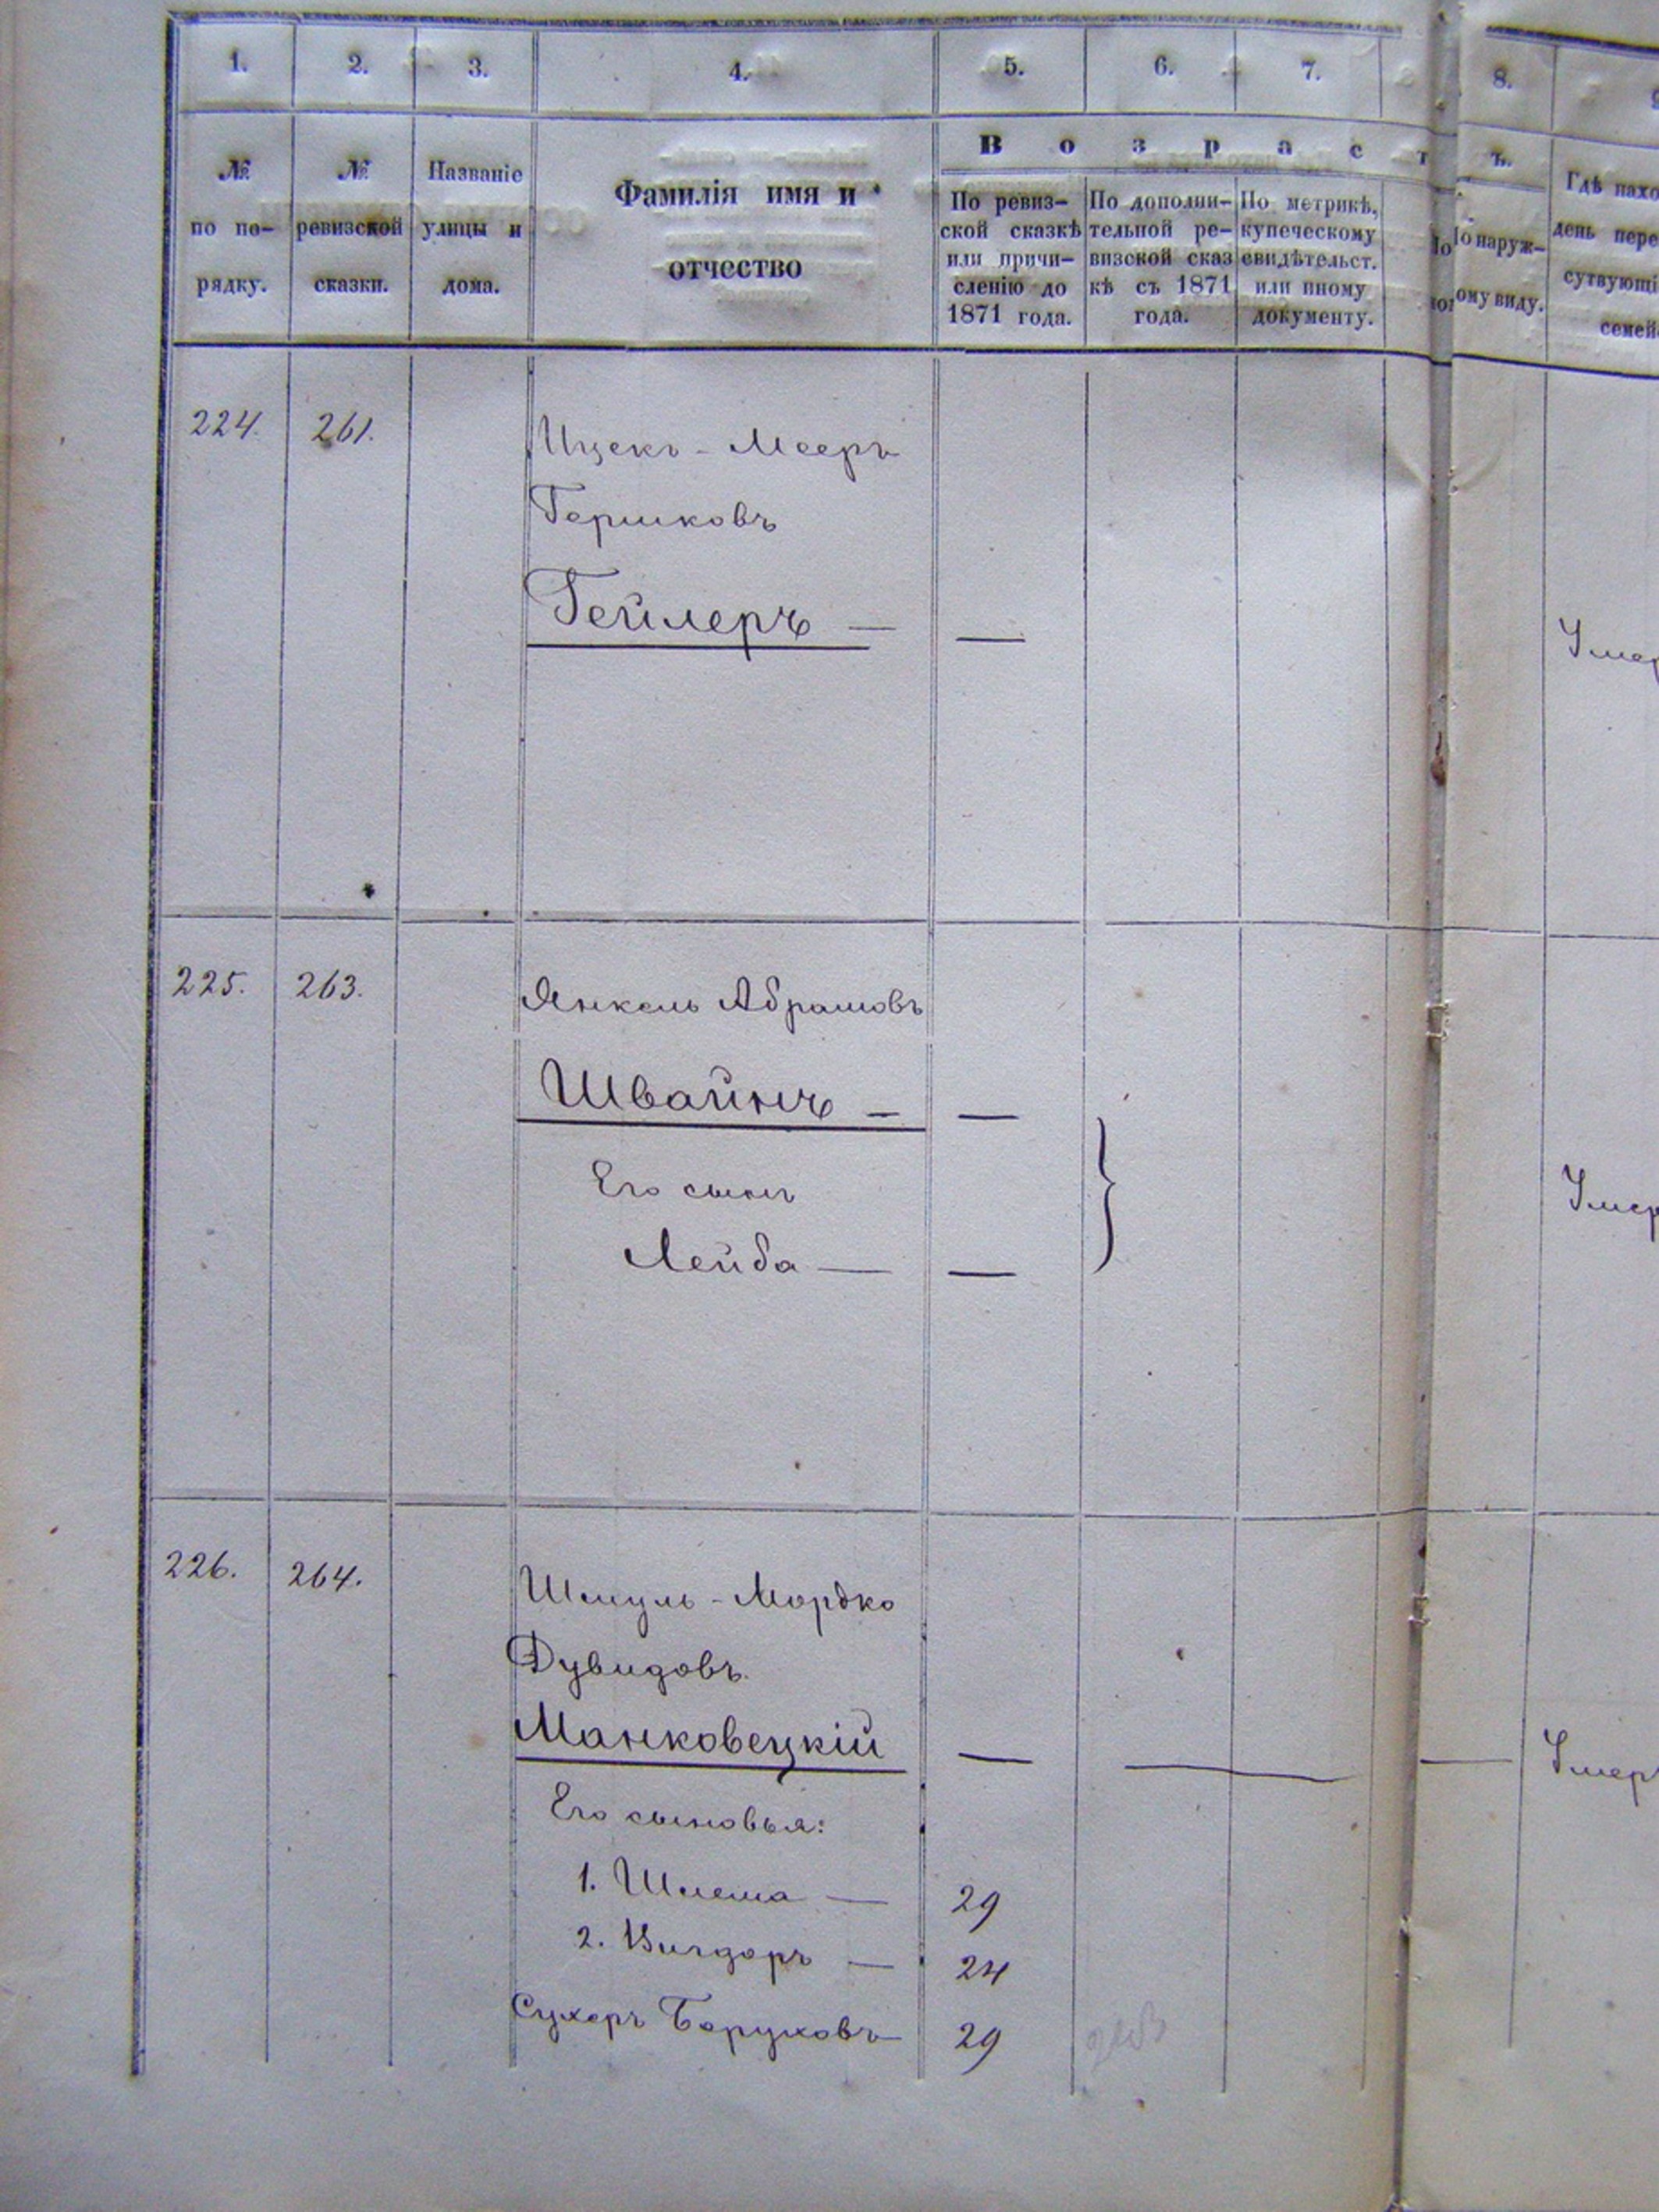 1. 2. 3. 4. 5. 6. 7. 8.
В о з р а с т ъ.
№ по по-рядку.
№ ревизской сказки.
Названіе улицы и дома.
Фамилія имя и
отчество
По ревиз-
ской сказкѣ
или причи-
сленію до
1871 года.
По дополни-
тельной ре-
визской сказ
кѣ съ 1871
года.
По метрикѣ,
купеческому
свидѣтельст.
или иному
документу.
По наруж-
ному виду.
Гдѣ нахо
день пере
сутвующі
семей
224. 261. Ицекъ - Мееръ
Гершковъ
Гейлеръ — —
Умер
225. 263. Янкель Абрамовъ
Швайнъ — —
Его сынъ
Умер
Лейба — —
226. 264. Шмуль - Мордко
Дувидовъ.
Манковецкій — — —
Умер
Его сыновья:
1. Шлема — 29
2. Вигдоръ — 24
Сухеръ Боруховъ 29